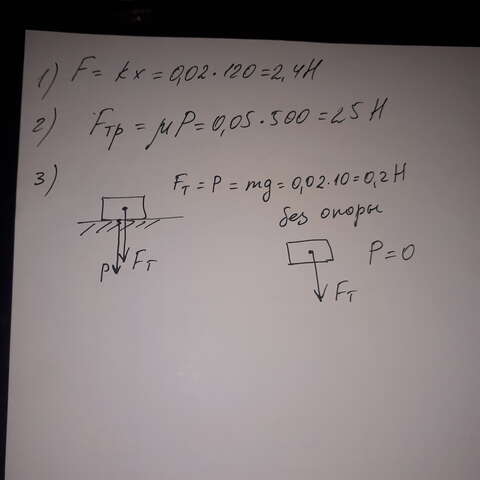 1) F = kx = 0,02 · 120 = 2,4 Н
2) Fтр = μP = 0,05 · 500 = 25 Н
3) Fт = P = mg = 0,02 · 10 = 0,2 Н
без опоры
P Fт
P = 0
Fт